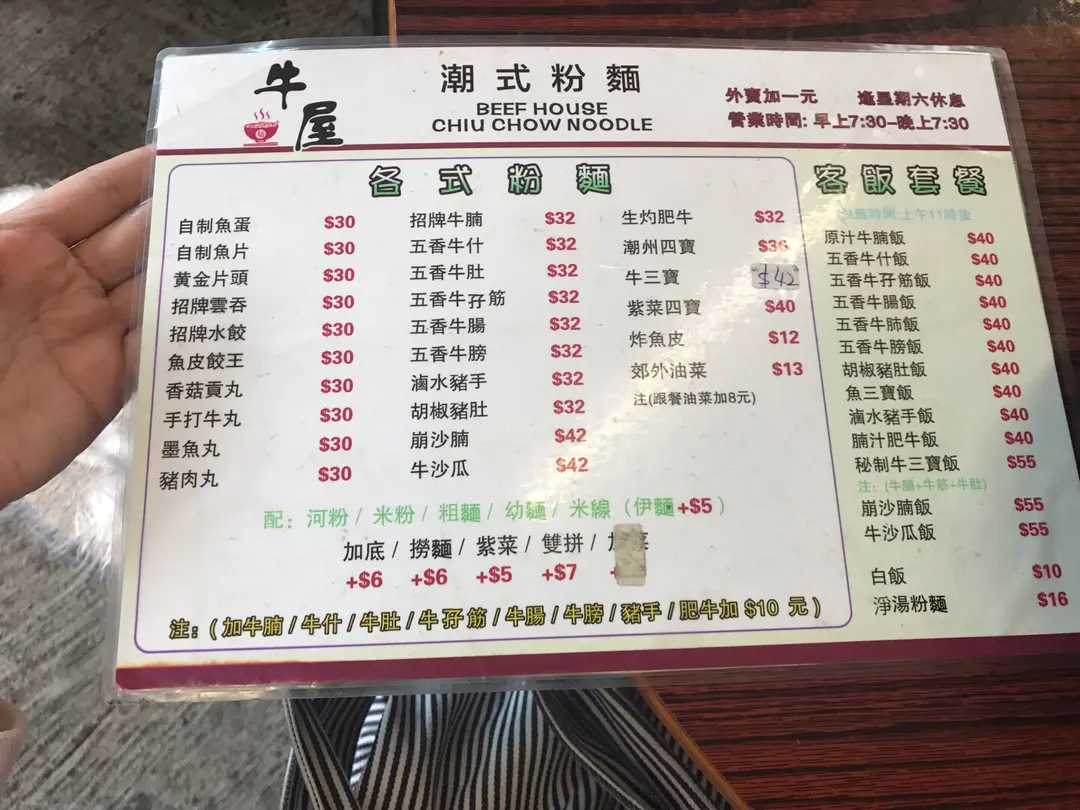 牛屋
潮式粉麵
BEEF HOUSE
CHIU CHOW NOODLE
外賣加一元 逢星期六休息
營業時間: 早上7:30-晚上7:30
各式粉麵
自制魚蛋 $30
自制魚片 $30
黄金片頭 $30
招牌雲吞 $30
招牌水餃 $30
魚皮餃王 $30
香菇貢丸 $30
手打牛丸 $30
墨魚丸 $30
豬肉丸 $30
招牌牛腩 $32
五香牛什 $32
五香牛肚 $32
五香牛孖筋 $32
五香牛腸 $32
五香牛膀 $32
滷水豬手 $32
胡椒豬肚 $32
崩沙腩 $42
牛沙瓜 $42
生灼肥牛 $32
潮州四寶 $36
牛三寶 $42
紫菜四寶 $40
炸魚皮 $12
郊外油菜 $13
注(跟餐油菜加8元)
配: 河粉 / 米粉 / 粗麵 / 幼麵 / 米線 (伊麵+$5)
加底 / 撈麵 / 紫菜 / 雙拼 /
+$6 +$6 +$5 +$7
注: ( 加牛腩 / 牛什 / 牛肚 / 牛孖筋 / 牛腸 / 牛膀 / 豬手 / 肥牛加 $10 元 )
客飯套餐
時間:上午11時後
原汁牛腩飯 $40
五香牛什飯 $40
五香牛孖筋飯 $40
五香牛腸飯 $40
五香牛肺飯 $40
五香牛膀飯 $40
胡椒豬肚飯 $40
魚三寶飯 $40
滷水豬手飯 $40
腩汁肥牛飯 $40
秘制牛三寶飯 $55
注: (牛腩+牛筋+牛肚)
崩沙腩飯 $55
牛沙瓜飯 $55
白飯 $10
淨湯粉麵 $16